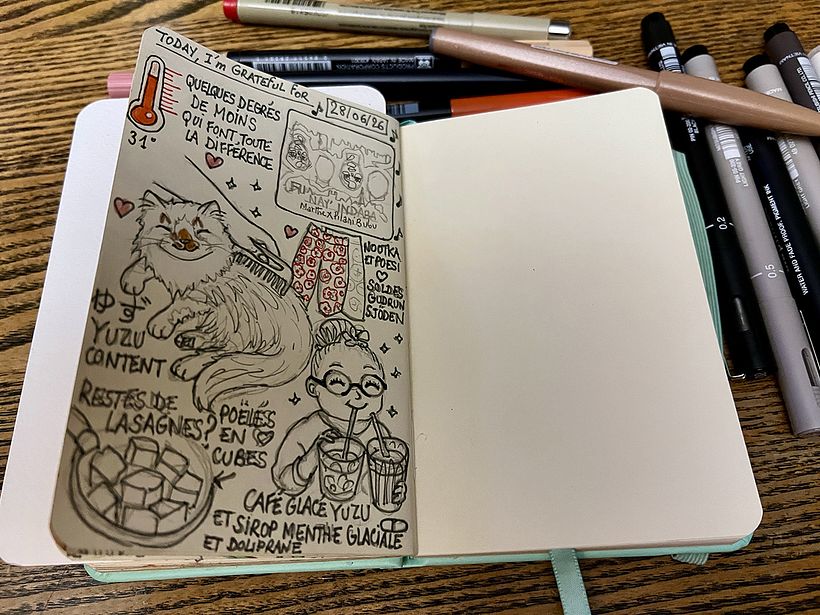 TODAY, I'M GRATEFUL FOR
28/06/26
31°
QUELQUES DEGRÉS
DE MOINS
QUI FONT TOUTE
LA DIFFERENCE
NOOTKA
ET POESI
SOLDES
GUDRUN
SJÖDEN
YUZU
CONTENT
RESTES DE
LASAGNES?
POÊLÉES
EN
CUBES
CAFÉ GLACÉ YUZU
ET SIROP MENTHE GLACIALE
ET DOLIPRANE
0.2
0.5
WATER AND FADE PROOF, PIGMENT INK